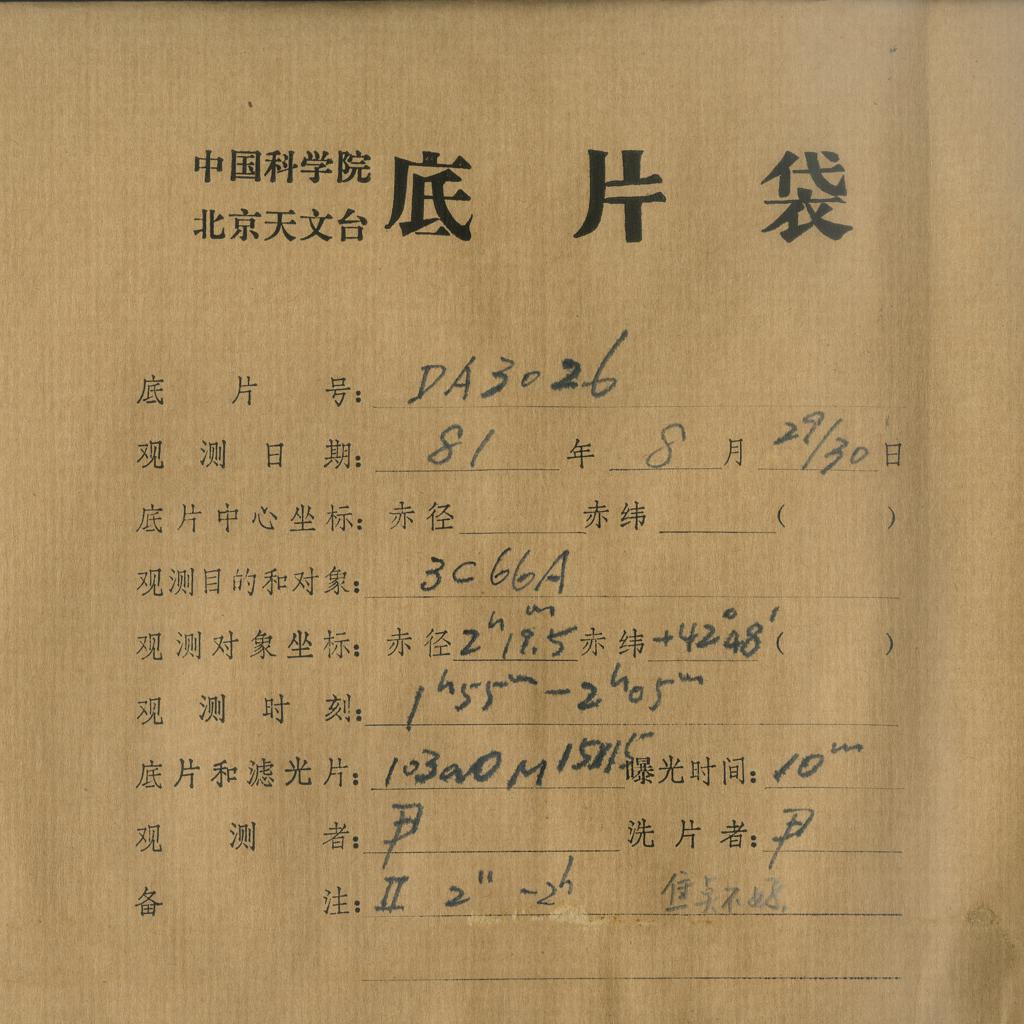 中国科学院
北京天文台
底片袋
底片号: DA3026
观测日期: 81年8月29/30日
底片中心坐标: 赤径 赤纬 ( )
观测目的和对象: 3C66A
观测对象坐标: 赤径 2h19m.5 赤纬 +42°48′ ( )
观测时刻: 1h55m-2h05m
底片和滤光片: 103aO M 15X15 曝光时间: 10m
观测者: 尹 洗片者: 尹
备注: II 2" -2h 焦点不好.